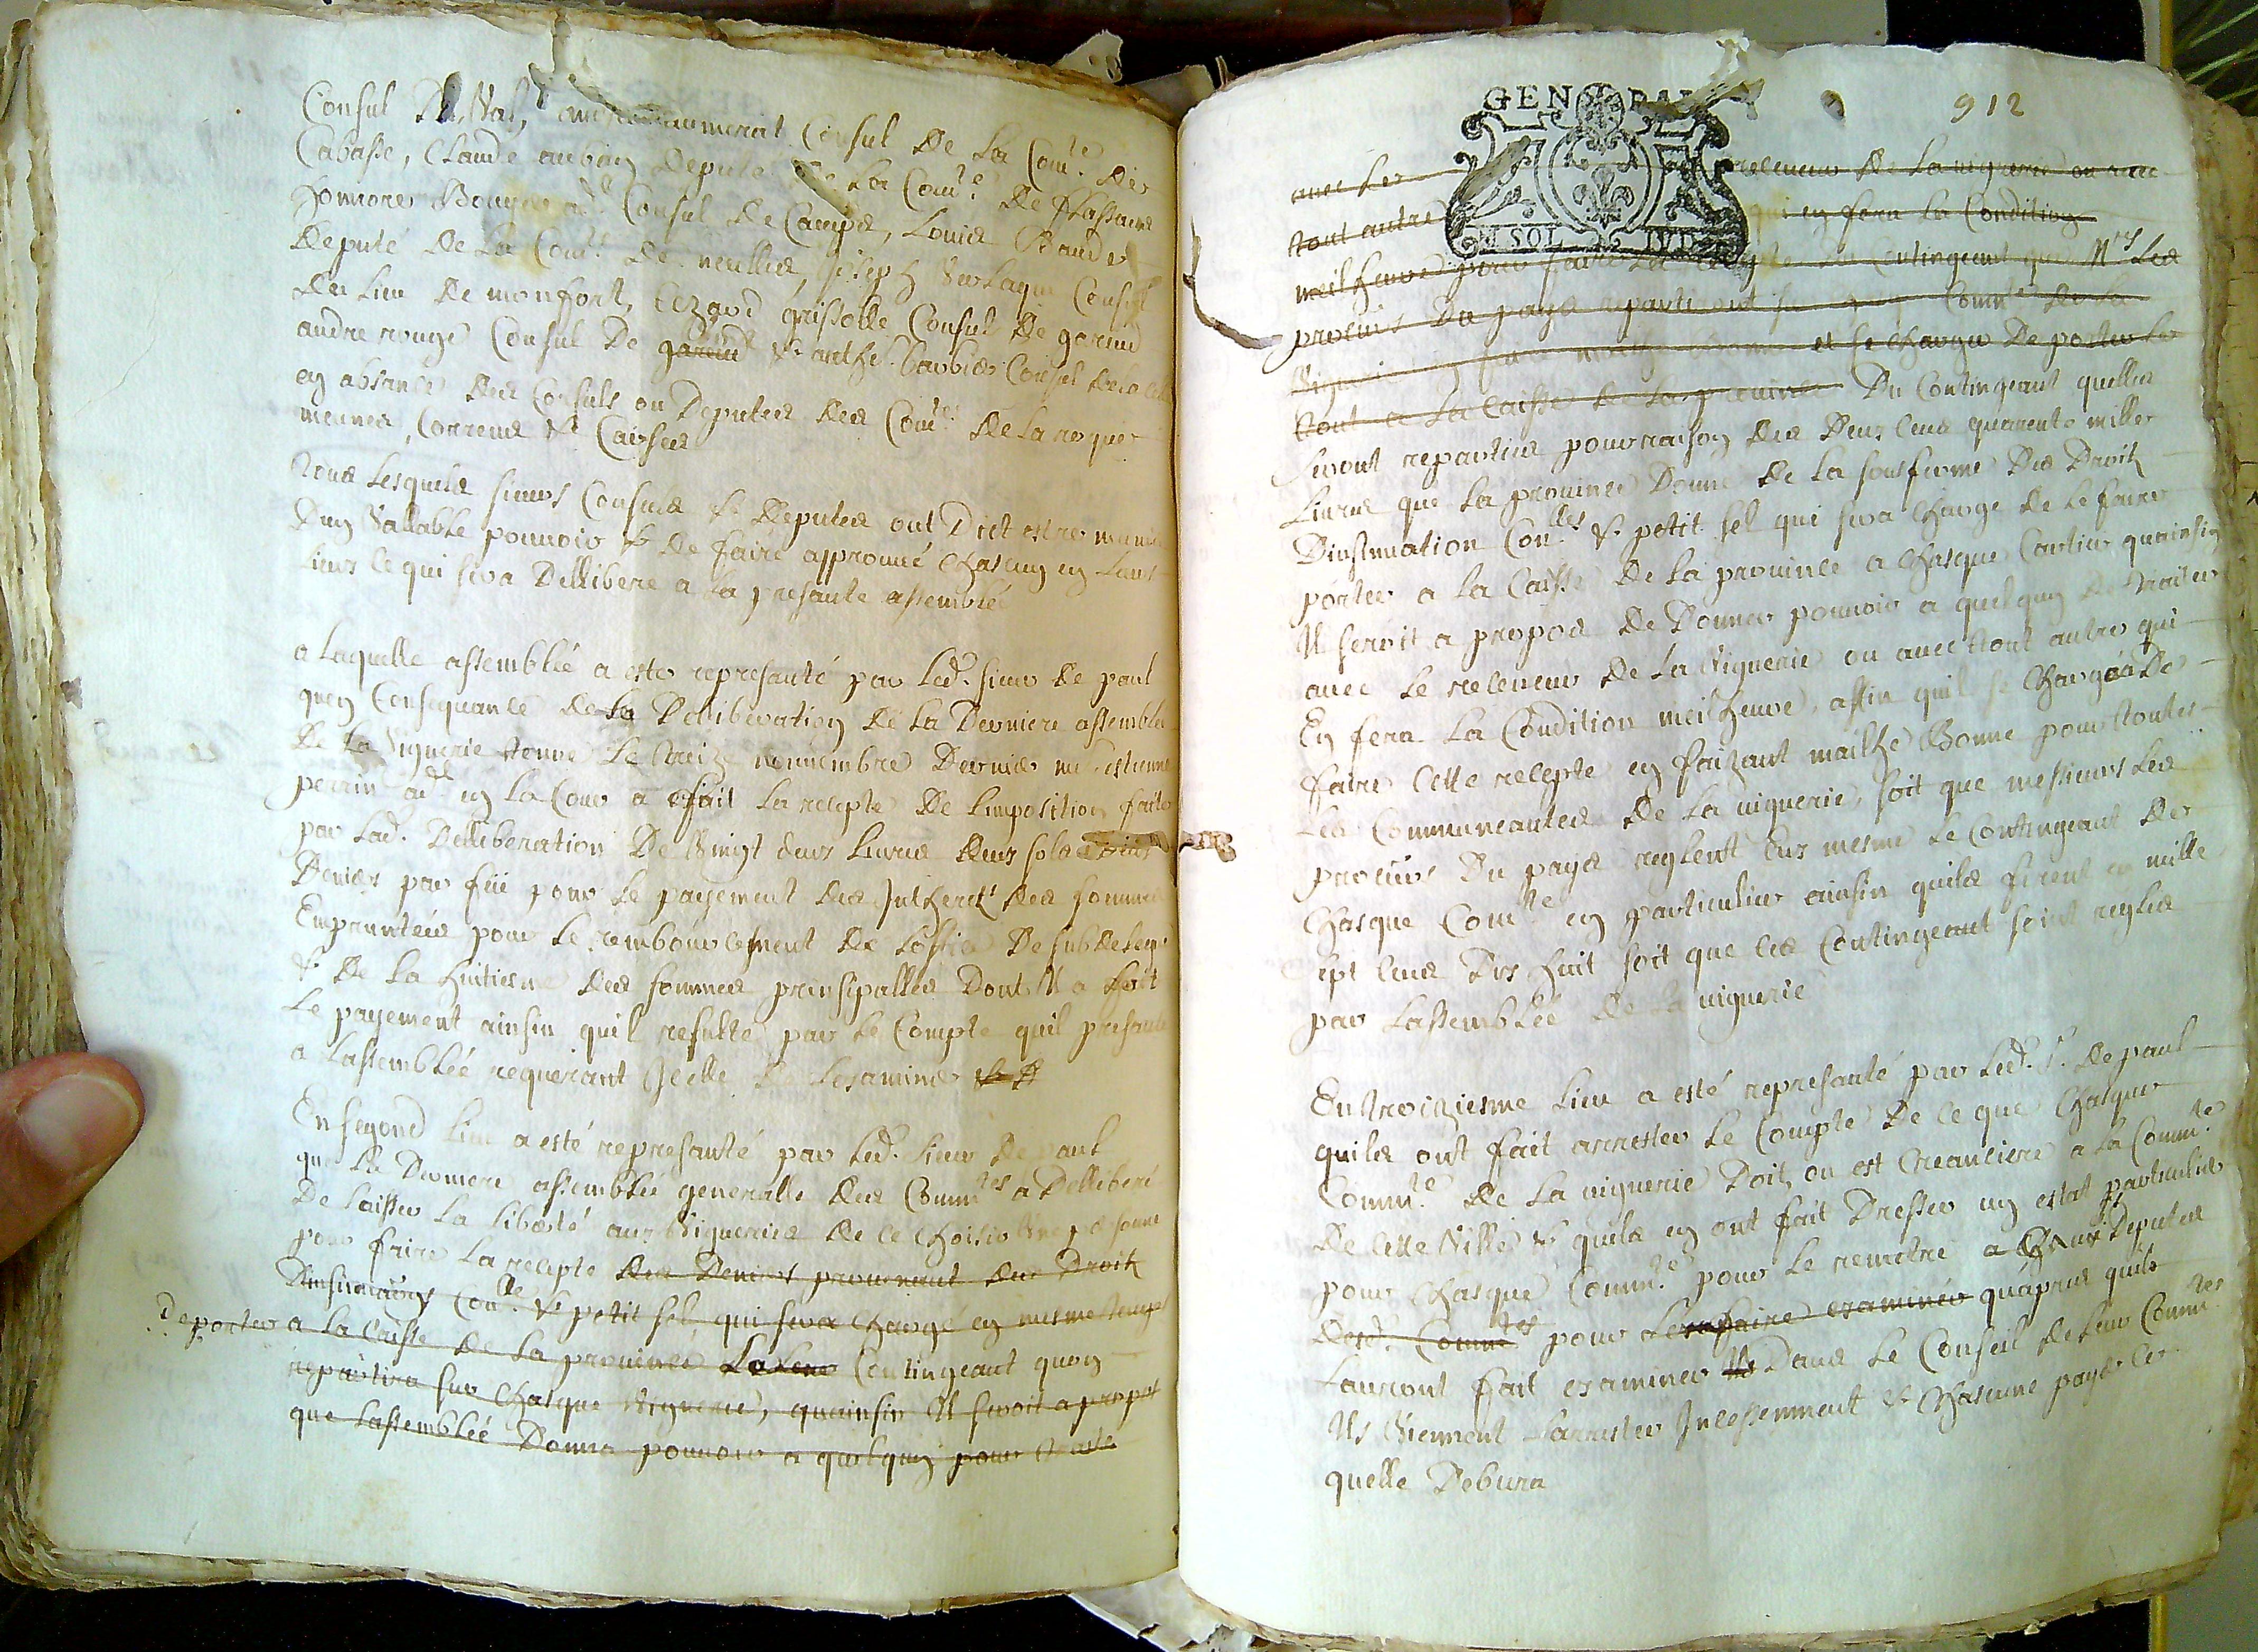 Consul Du Val, Consul De La Com.te De
Cabasse, Claude aubin Deputé De La Com.te De flassans
honnore Bouyer ad.t Consul De Camps, Louis Baude
Deputé De La Com.te De neulles, Joseph Consul
du Lieu De monfort, grissolle Consul De gareud
andre rouge Consul De gareud & Barbier Consul De la celle
en absance des Consuls ou Deputes des Com.tes De La roque
meunes, Correns & Caisses
tous Lesquels sieurs Consuls & Deputes ont Dict estre munis
Dun Vallable pouvoir & De faire approuvé chascun en Leurs
Lieux Ce qui sera Dellibere a La presante assemblée
a Laquelle assemblée a este represanté par Led. sieur De paul
quen Consequance de la Deliberation De La Derniere assemblee
De La Viguerie tenue Le treize nouuembre Dernier me estienne
perrin ad.t en La Cour a fait La recepte De Limposition faite
par Lad. Delliberation De Vingt deux Liures deux sols
Deniers par fiù pour Le payement des Intherets des sommes
Empruntées pour Le remboursement De Loffice De subdelegé
& De La huitiesme des sommes prinsipalles Dont Il a fait
Le payement ainsin quil resulte par Le Compte quil presante
a Lassemblée requerant Icelle De Lexaminer
En segond Lieu a esté represanté par Led. sieur De paul
que La Derniere assemblée generalle des Comm.tes a Delliberé
De Laisser La Liberté aux Vigueries De Ce Choisir Vne personne
pour faire La recepte des Deniers prouenant des Droits
Dinsinuaõns Con.lle & petit sel qui sera chargé en mesme temps
De porter a La Caisse De La prouince Contingeant quon
repartira sur chasque Viguerie, quainsin Il seroit a propos
que Lassemblée Donna pouuoir a quelquun pour traite
GEN
912
SOL
auec Le releueur De La viguerie ou auec
tout autre qui en fera La Condition
meilheure pour faire La Contingeant que M.rs Les
procurs Du pays repartiront Comm.te De La
Viguerie et se charger De porter Le
tout a La Caisse De La prouince Du Contingeant quelles
seront reparties pour raison des Deux Cens quarente milles
Liures que La prouince Donne De La sousferme Des Droits
Dinsinuation Con.lles & petit sel qui sera charge De Le faire
porter a La Caisse De La prouince a chasque Cartier quainsin
Il seroit a propos De Donner pouuoir a quelquun De traiter
auec Le releueur De La Viguerie ou auec tout autre qui
En fera La Condition meilheure, affin quil se chargé De
faire Cette recepte en faizant mailhe Bonne pour toutes
Les Communeautes De La uiguerie, soit que messieurs Les
procurs Du pays reglent Eux mesme Le Contingeant De
chasque Com.te en particulier ainsin quils firent en mille
sept Cens Dix huit soit que Les Contingeant soint regles
par Lassemblée De La uiguerie
En troiziesme Lieu a esté represanté par Led. s.r De paul
quils ont fait arrester Le Compte De Ce que chasque
Comm.te De La uiguerie Doit ou est Creanciere a La Comm.te
De Cette Ville & quils en ont fait Dresser un estat particulier
pour chasque Comm.te pour Le remetre a Deputes
Desd. Comm.tes pour Le faire examiner quapres quils
Lauront fait examiner Dans Le Conseil De Leur Comm.tes
Ils Viennent Larrester Incessemment & chascune payer Ce
quelle Deburra